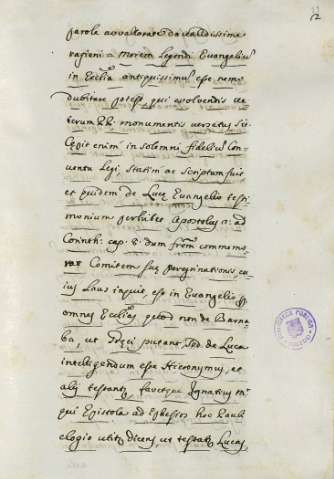 12
parola avvalorare da validissime
ragioni. Morem legendi Evangelium
in Ecclia antiquissimum esse nemo
dubitare potest, qui evolvendis ve
terum PP. monumentis versatus sit.
Cepit enim in solemni fidelium con
ventu legi, statim ac scriptum fuit
et quidem de Lucæ Evangelio testi
monium perhibet Apostolus 2. ad
Corinth: cap. 8. dum frem commemo
rat Comitem suæ peregrinationis cu
ius Laus inquit, est in Evangelio p
omnes Ecclias, quod non de Barna
ba, ut Græci putant, sed de Luca
intelligendum esse Hieronymus, et
alij testantur, favetque Ignatius m.
qui Epistola ad Ephesios hoc Pauli
elogio utitur dicens, ut testatur Lucas